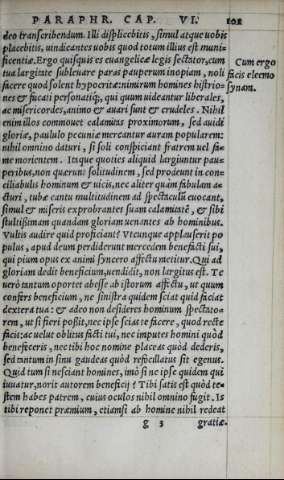 PARAPHR. CAP. VI. 101
deo transcribendum. Illi displicebitis, simul atque uobis
placebitis, uindicantes uobis quod totum illius est muni-
ficentiæ. Ergo quisquis es euangelicæ legis sectator, cum
tua largiute subleuare paras pauperum inopiam, noli
facere quod solent hypocritæ: nimirum homines histrio-
nes & fucati personatiq́, qui quum uideantur liberales,
ac misericordes, animo & auari sunt & crudeles. Nihil
enim illos commouet calamitas proximorum, sed auidi
gloriæ, paululo pecuniæ mercantur auram popularem:
nihil omnino daturi, si soli conspiciant fratrem uel fa-
me morientem. Itaque quoties aliquid largiuntur pau-
peribus, non quærunt solitudinem, sed prodeunt in con-
ciliabulis hominum & uicis, nec aliter quàm fabulam a-
cturi, tuba cantu multitudinem ad spectaculũ euocant,
simul & miseris exprobrantes suam calamitatẽ, & sibi
stultißimam quandam gloriam uenantes ab hominibus.
Vultis audire quid proficiant? Vtcunque applauserit po
pulus, apud deum perdiderunt mercedem benefacti sui,
qui pium opus ex animi syncero affectu metitur. Qui ad
gloriam dedit beneficium, uendidit, non largitus est. Te
uerò tantum oportet abesse ab istorum affectu, ut quum
confers beneficium, ne sinistra quidem sciat quid faciat
dextera tua: & adeo non desideres hominum spectato-
rem, ut si fieri poßit, nec ipse scias te facere, quod recte
facis: ac uelut oblitus facti tui, nec imputes homini quòd
benefeceris, nec tibi hoc nomine placeas quòd dederis,
sed tantum in sinu gaudeas quòd refocillatus sit egenus.
Quid tum si nesciant homines, imò si ne ipse quidem qui
iuuatur, norit autorem beneficij? Tibi satis est quòd te-
stem habes patrem, cuius oculos nihil omnino fugit. Is
tibi reponet præmium, etiamsi ab homine nihil redeat
g 3 gratiæ.
Cum ergo
facis eleemo
synam.